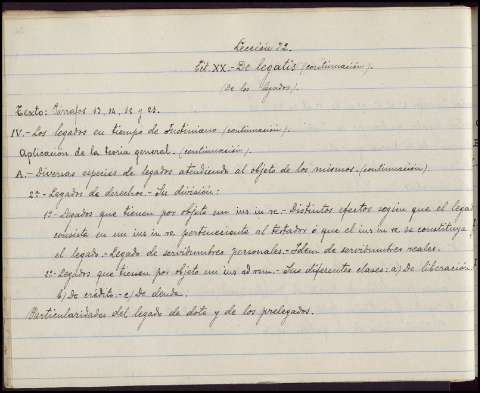 Lección 72.
Tít. XX.- De legatis (continuación).
(De los legados).
Texto: Párrafos 13, 14, 15 y 23.
IV.- Los legados en tiempo de Justiniano (continuación).
Aplicación de la teoría general. (continuación).
A.- Diversas especies de legados atendiendo al objeto de los mismos. (continuación).
2º- Legados de derechos.- Su división:
1º- Legados que tienen por objeto un ius in re.- Distintos efectos según que el legado
consista en un ius in re perteneciente al testador ó que el ius in re se constituya
el legado.- Legado de servidumbres personales.- Idem de servidumbres reales.
2º- Legados que tienen por objeto un ius ad rem.- Sus diferentes clases: a) De liberación.
b) De crédito.- c) De deuda.
Particularidades del legado de dote y de los prelegados.